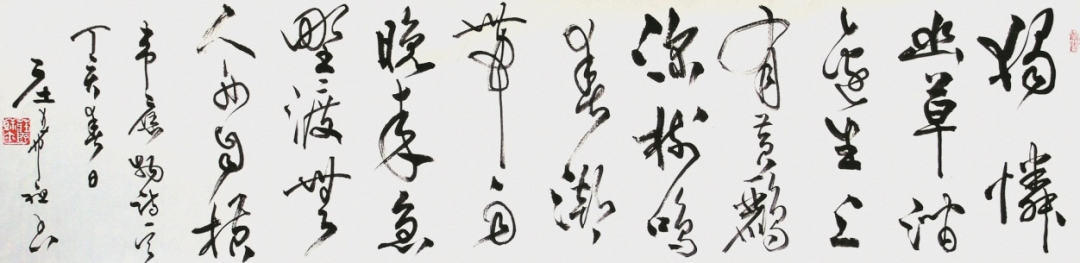 獨憐
幽草澗
邊生上
有黃鸝
深樹鳴
春潮
帶雨
晚來急
野渡無
人舟自橫
韋應物詩一首
丁亥春日